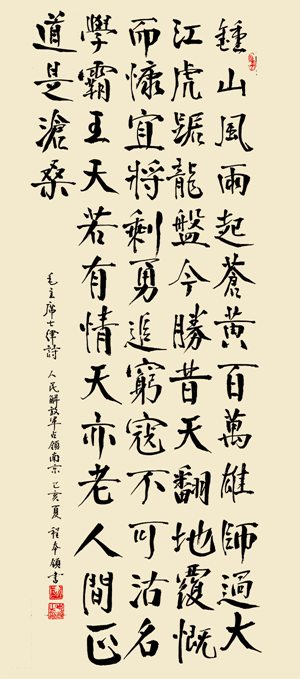 鍾山風雨起蒼黃百萬雄師過大
江虎踞龍盤今勝昔天翻地覆慨
而慷宜將剩勇追窮寇不可沽名
學霸王天若有情天亦老人間正
道是滄桑
毛主席七律詩 人民解放軍占領南京 亥夏 程書